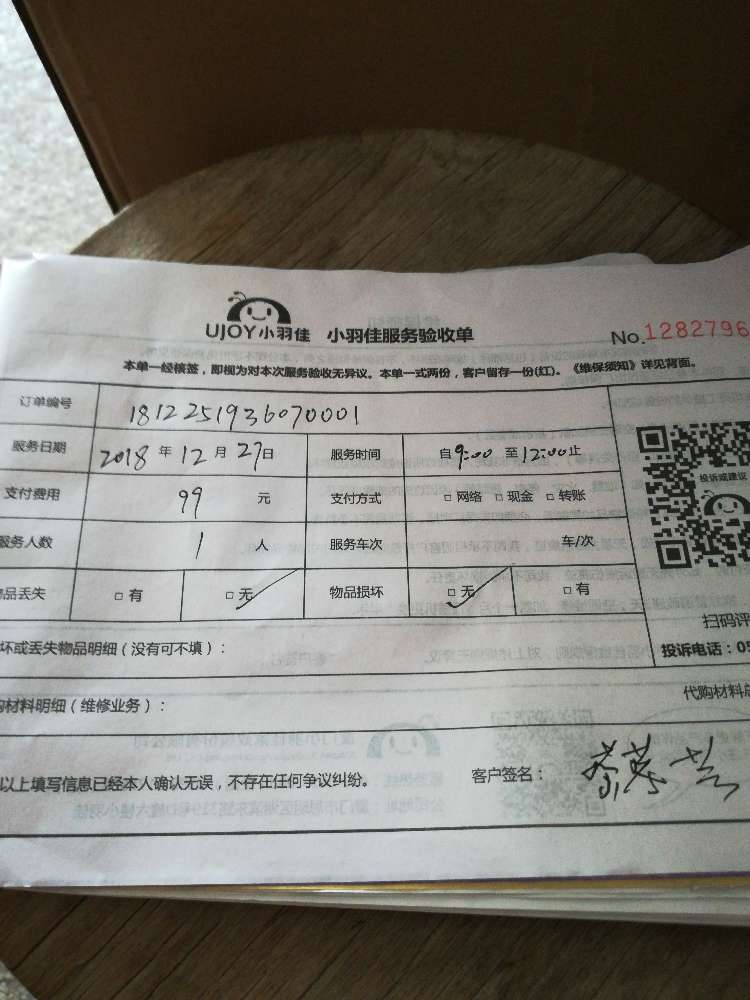 UJOY小羽佳 小羽佳服务验收单
No.1282796
本单一经核签，即视为对本次服务验收无异议。本单一式两份，客户留存一份(红)。《维保须知》详见背面。
订单编号 1812251936070001
服务日期 2018 年 12 月 27日 服务时间 自9:00 至12:00止
支付费用 99 元 支付方式 □ 网络 □ 现金 □ 转账
服务人数 1 人 服务车次 车/次
品丢失 □ 有 □ 无 物品损坏 □ 无 □ 有
投诉或建议
扫码评
投诉电话：05
坏或丢失物品明细（没有可不填）：
代购材料总
购材料明细（维修业务）：
以上填写信息已经本人确认无误，不存在任何争议纠纷。 客户签名：